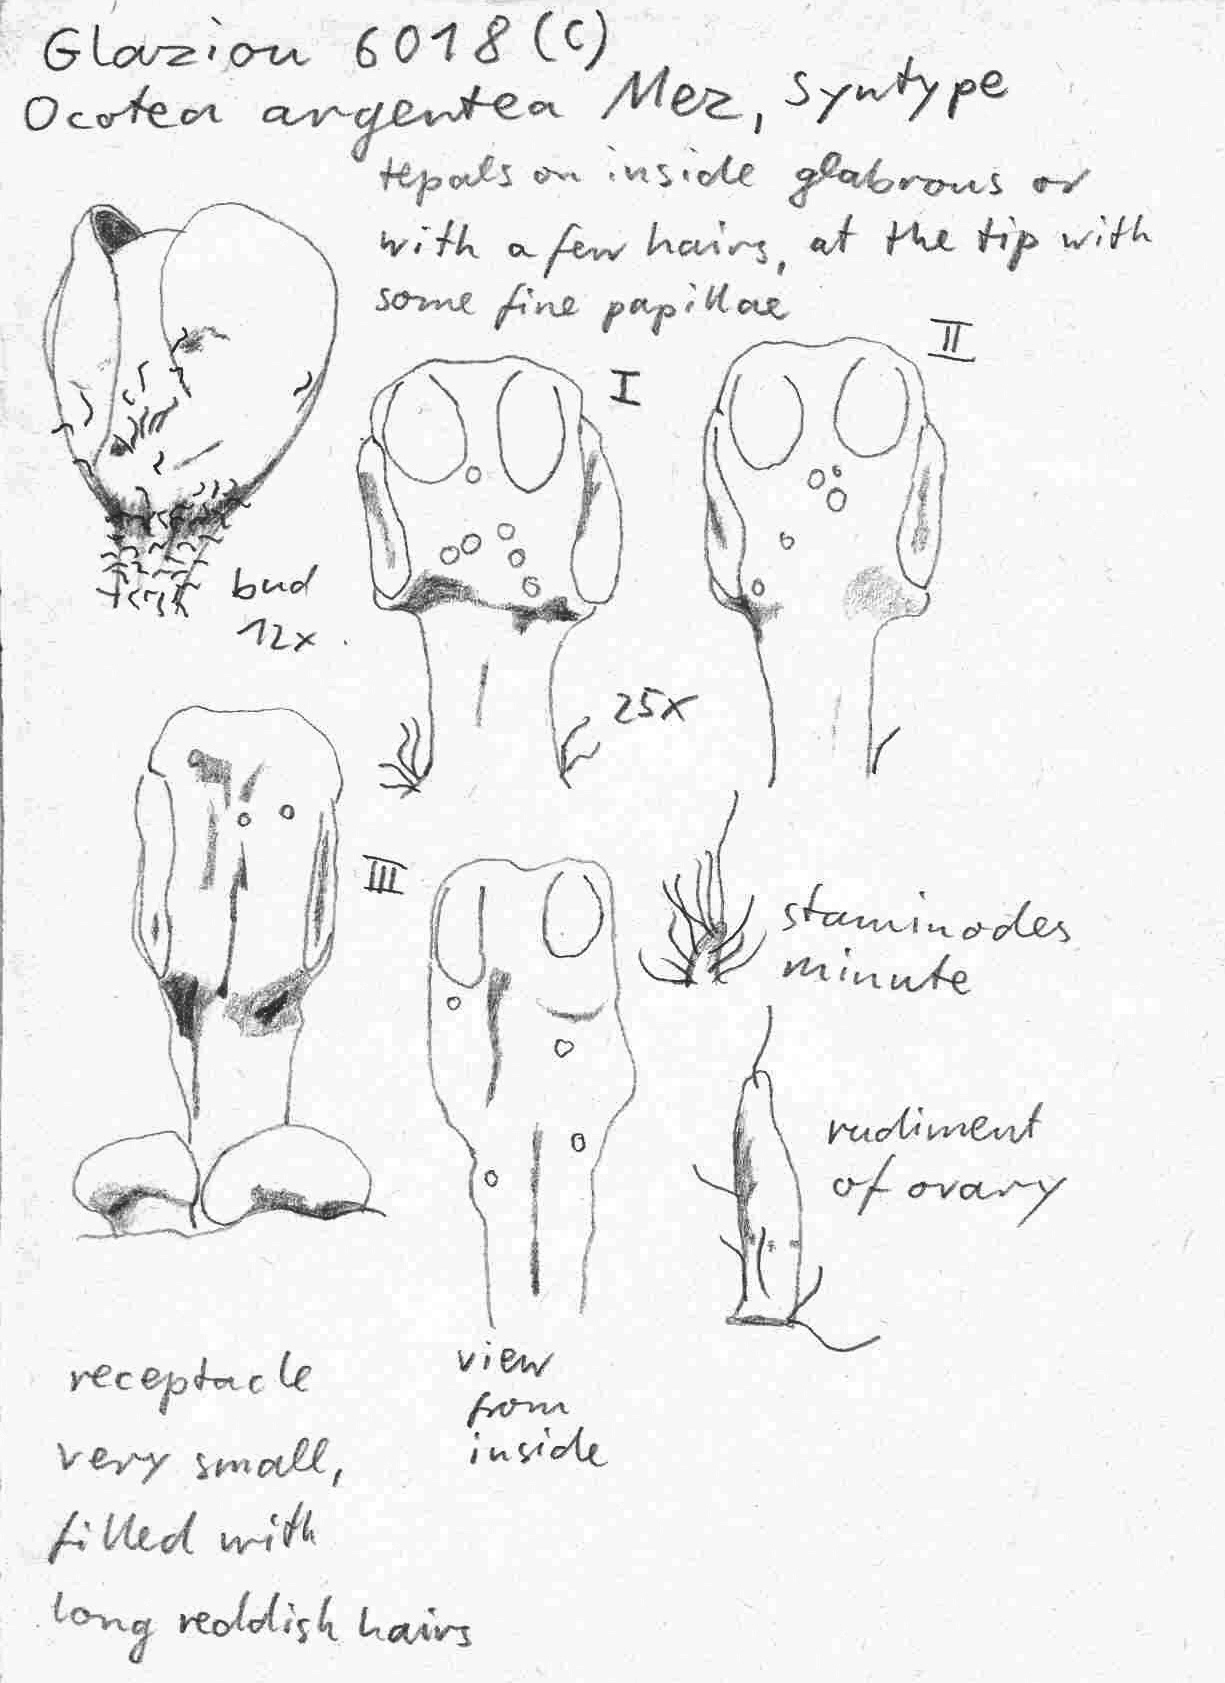 Glaziou 6018 (C)
Ocotea argentea Mez, Syntype
tepals on inside glabrous or
with a few hairs, at the tip with
some fine papillae
I
II
bud
12x
25x
III
staminodes
minute
rudiment
of ovary
view
from
inside
receptacle
very small,
filled with
long reddish hairs